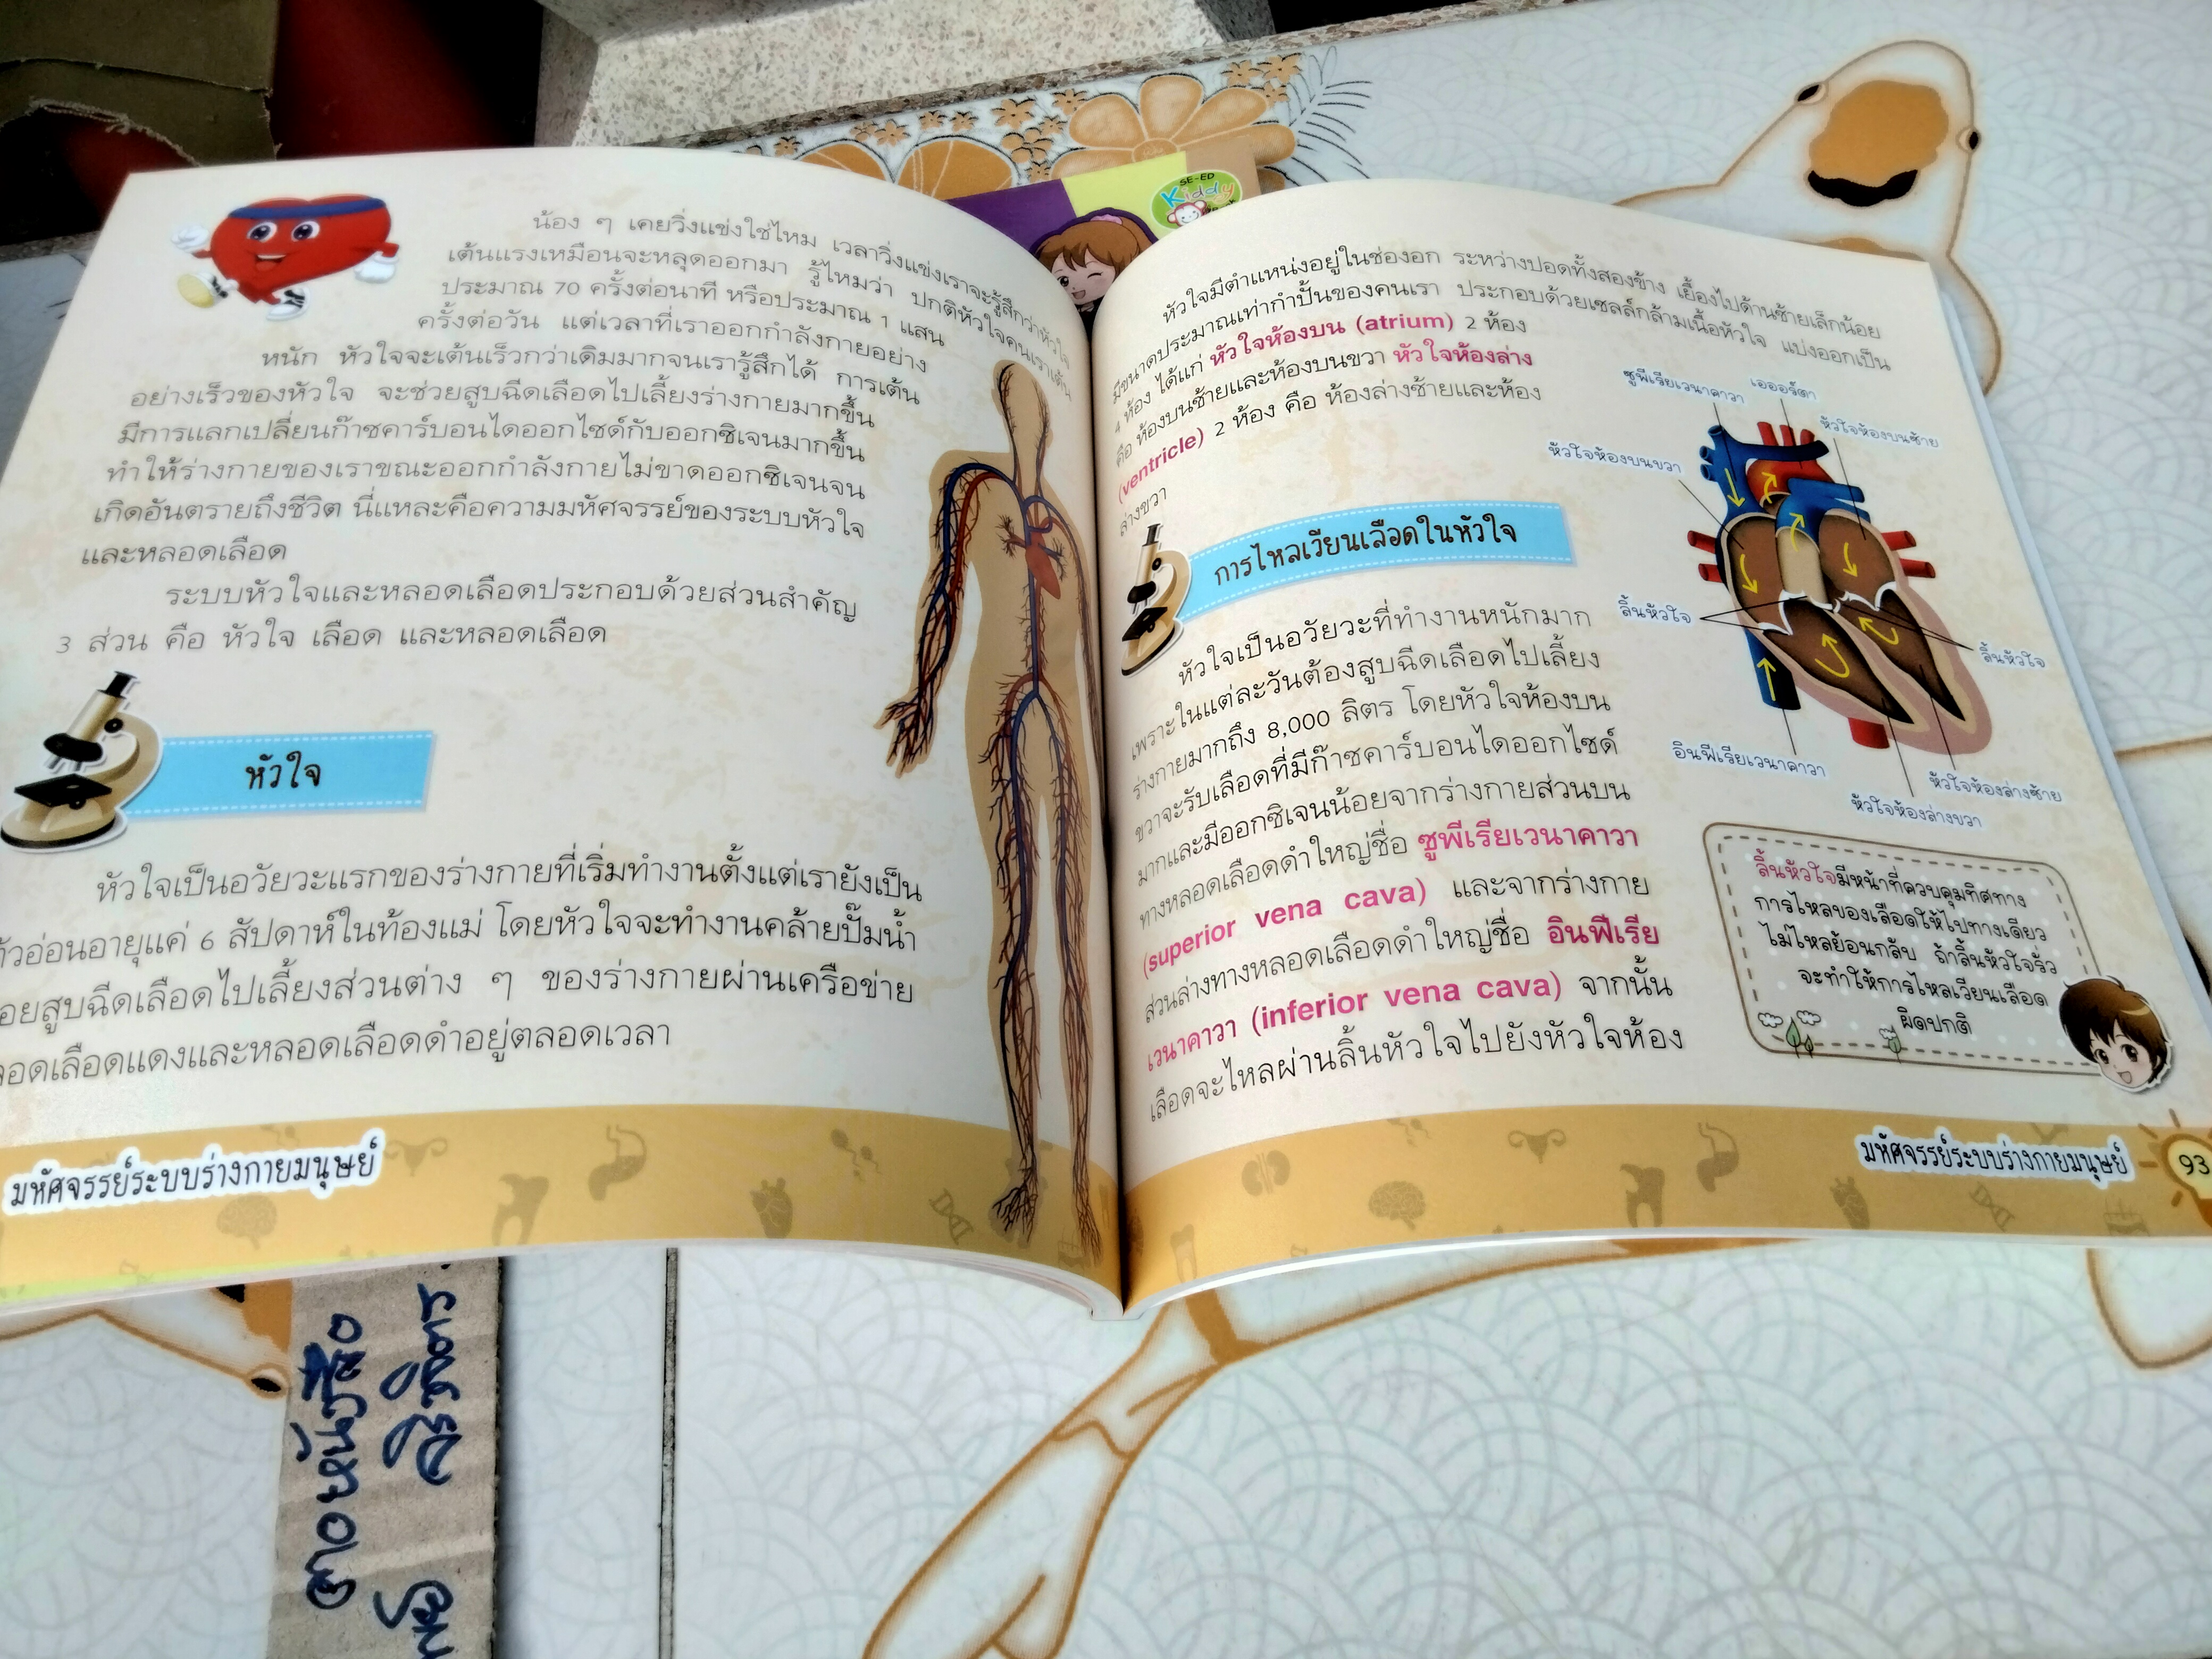 น้อง ๆ เคยวิ่งแข่งใช่ไหม เวลาวิ่งแข่งเราจะรู้สึกว่าหัวใจ
เต้นแรงเหมือนจะหลุดออกมา รู้ไหมว่า ปกติหัวใจคนเราเต้น
ประมาณ 70 ครั้งต่อนาที หรือประมาณ 1 แสน
ครั้งต่อวัน แต่เวลาที่เราออกกำลังกายอย่าง
หนัก หัวใจจะเต้นเร็วกว่าเดิมมากจนเรารู้สึกได้ การเต้น
อย่างเร็วของหัวใจ จะช่วยสูบฉีดเลือดไปเลี้ยงร่างกายมากขึ้น
มีการแลกเปลี่ยนก๊าซคาร์บอนไดออกไซด์กับออกซิเจนมากขึ้น
ทำให้ร่างกายของเราขณะออกกำลังกายไม่ขาดออกซิเจนจน
เกิดอันตรายถึงชีวิต นี่แหละคือความมหัศจรรย์ของระบบหัวใจ
และหลอดเลือด
ระบบหัวใจและหลอดเลือดประกอบด้วยส่วนสำคัญ
3 ส่วน คือ หัวใจ เลือด และหลอดเลือด
หัวใจ
หัวใจเป็นอวัยวะแรกของร่างกายที่เริ่มทำงานตั้งแต่เรายังเป็น
ตัวอ่อนอายุแค่ 6 สัปดาห์ในท้องแม่ โดยหัวใจจะทำงานคล้ายปั๊มน้ำ
อยสูบฉีดเลือดไปเลี้ยงส่วนต่าง ๆ ของร่างกายผ่านเครือข่าย
ลอดเลือดแดงและหลอดเลือดดำอยู่ตลอดเวลา
มหัศจรรย์ระบบร่างกายมนุษย์
SE-ED
Kiddy
หัวใจมีตำแหน่งอยู่ในช่องอก ระหว่างปอดทั้งสองข้าง เยื้องไปด้านซ้ายเล็กน้อย
มีขนาดประมาณเท่ากำปั้นของคนเรา ประกอบด้วยเซลล์กล้ามเนื้อหัวใจ แบ่งออกเป็น
4 ห้อง ได้แก่ หัวใจห้องบน (atrium) 2 ห้อง
คือ ห้องบนซ้ายและห้องบนขวา หัวใจห้องล่าง
(ventricle) 2 ห้อง คือ ห้องล่างซ้ายและห้อง
ล่างขวา
การไหลเวียนเลือดในหัวใจ
หัวใจเป็นอวัยวะที่ทำงานหนักมาก
เพราะในแต่ละวันต้องสูบฉีดเลือดไปเลี้ยง
ร่างกายมากถึง 8,000 ลิตร โดยหัวใจห้องบน
ขวาจะรับเลือดที่มีก๊าซคาร์บอนไดออกไซด์
มากและมีออกซิเจนน้อยจากร่างกายส่วนบน
ทางหลอดเลือดดำใหญ่ชื่อ ซูพีเรียเวนาคาวา
(superior vena cava) และจากร่างกาย
ส่วนล่างทางหลอดเลือดดำใหญ่ชื่อ อินฟีเรีย
เวนาคาวา (inferior vena cava) จากนั้น
เลือดจะไหลผ่านลิ้นหัวใจไปยังหัวใจห้อง
ซูพีเรียเวนาคาวา
เอออร์ตา
หัวใจห้องบนซ้าย
หัวใจห้องบนขวา
ลิ้นหัวใจ
ลิ้นหัวใจ
อินฟีเรียเวนาคาวา
หัวใจห้องล่างซ้าย
หัวใจห้องล่างขวา
ลิ้นหัวใจมีหน้าที่ควบคุมทิศทาง
การไหลของเลือดให้ไปทางเดียว
ไม่ไหลย้อนกลับ ถ้าลิ้นหัวใจรั่ว
จะทำให้การไหลเวียนเลือด
ผิดปกติ
มหัศจรรย์ระบบร่างกายมนุษย์
93